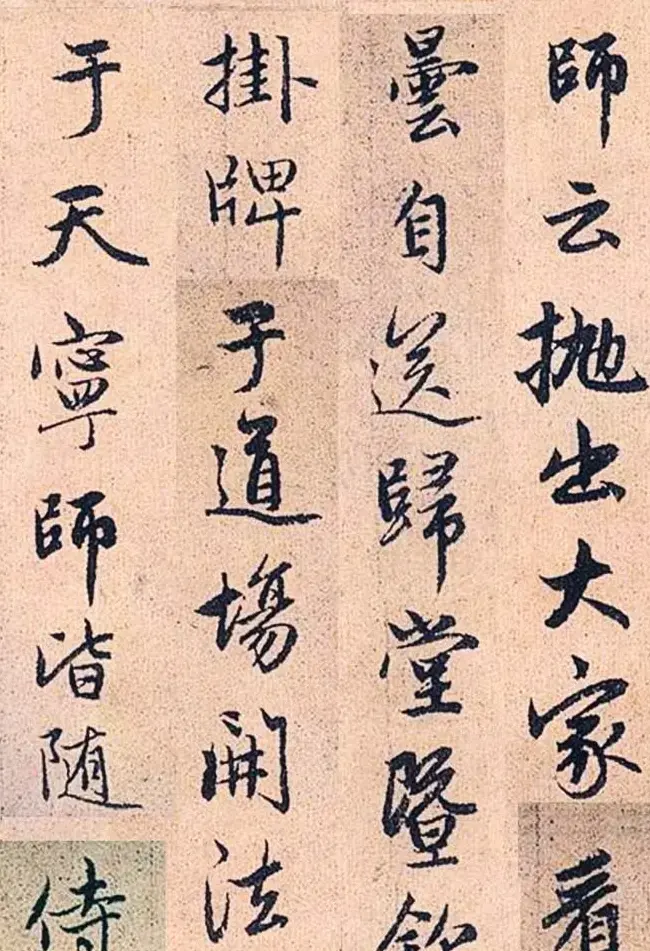 師云抛出大家看
曇自送歸堂暨欽
掛牌于道場開法
于天寧師皆随侍